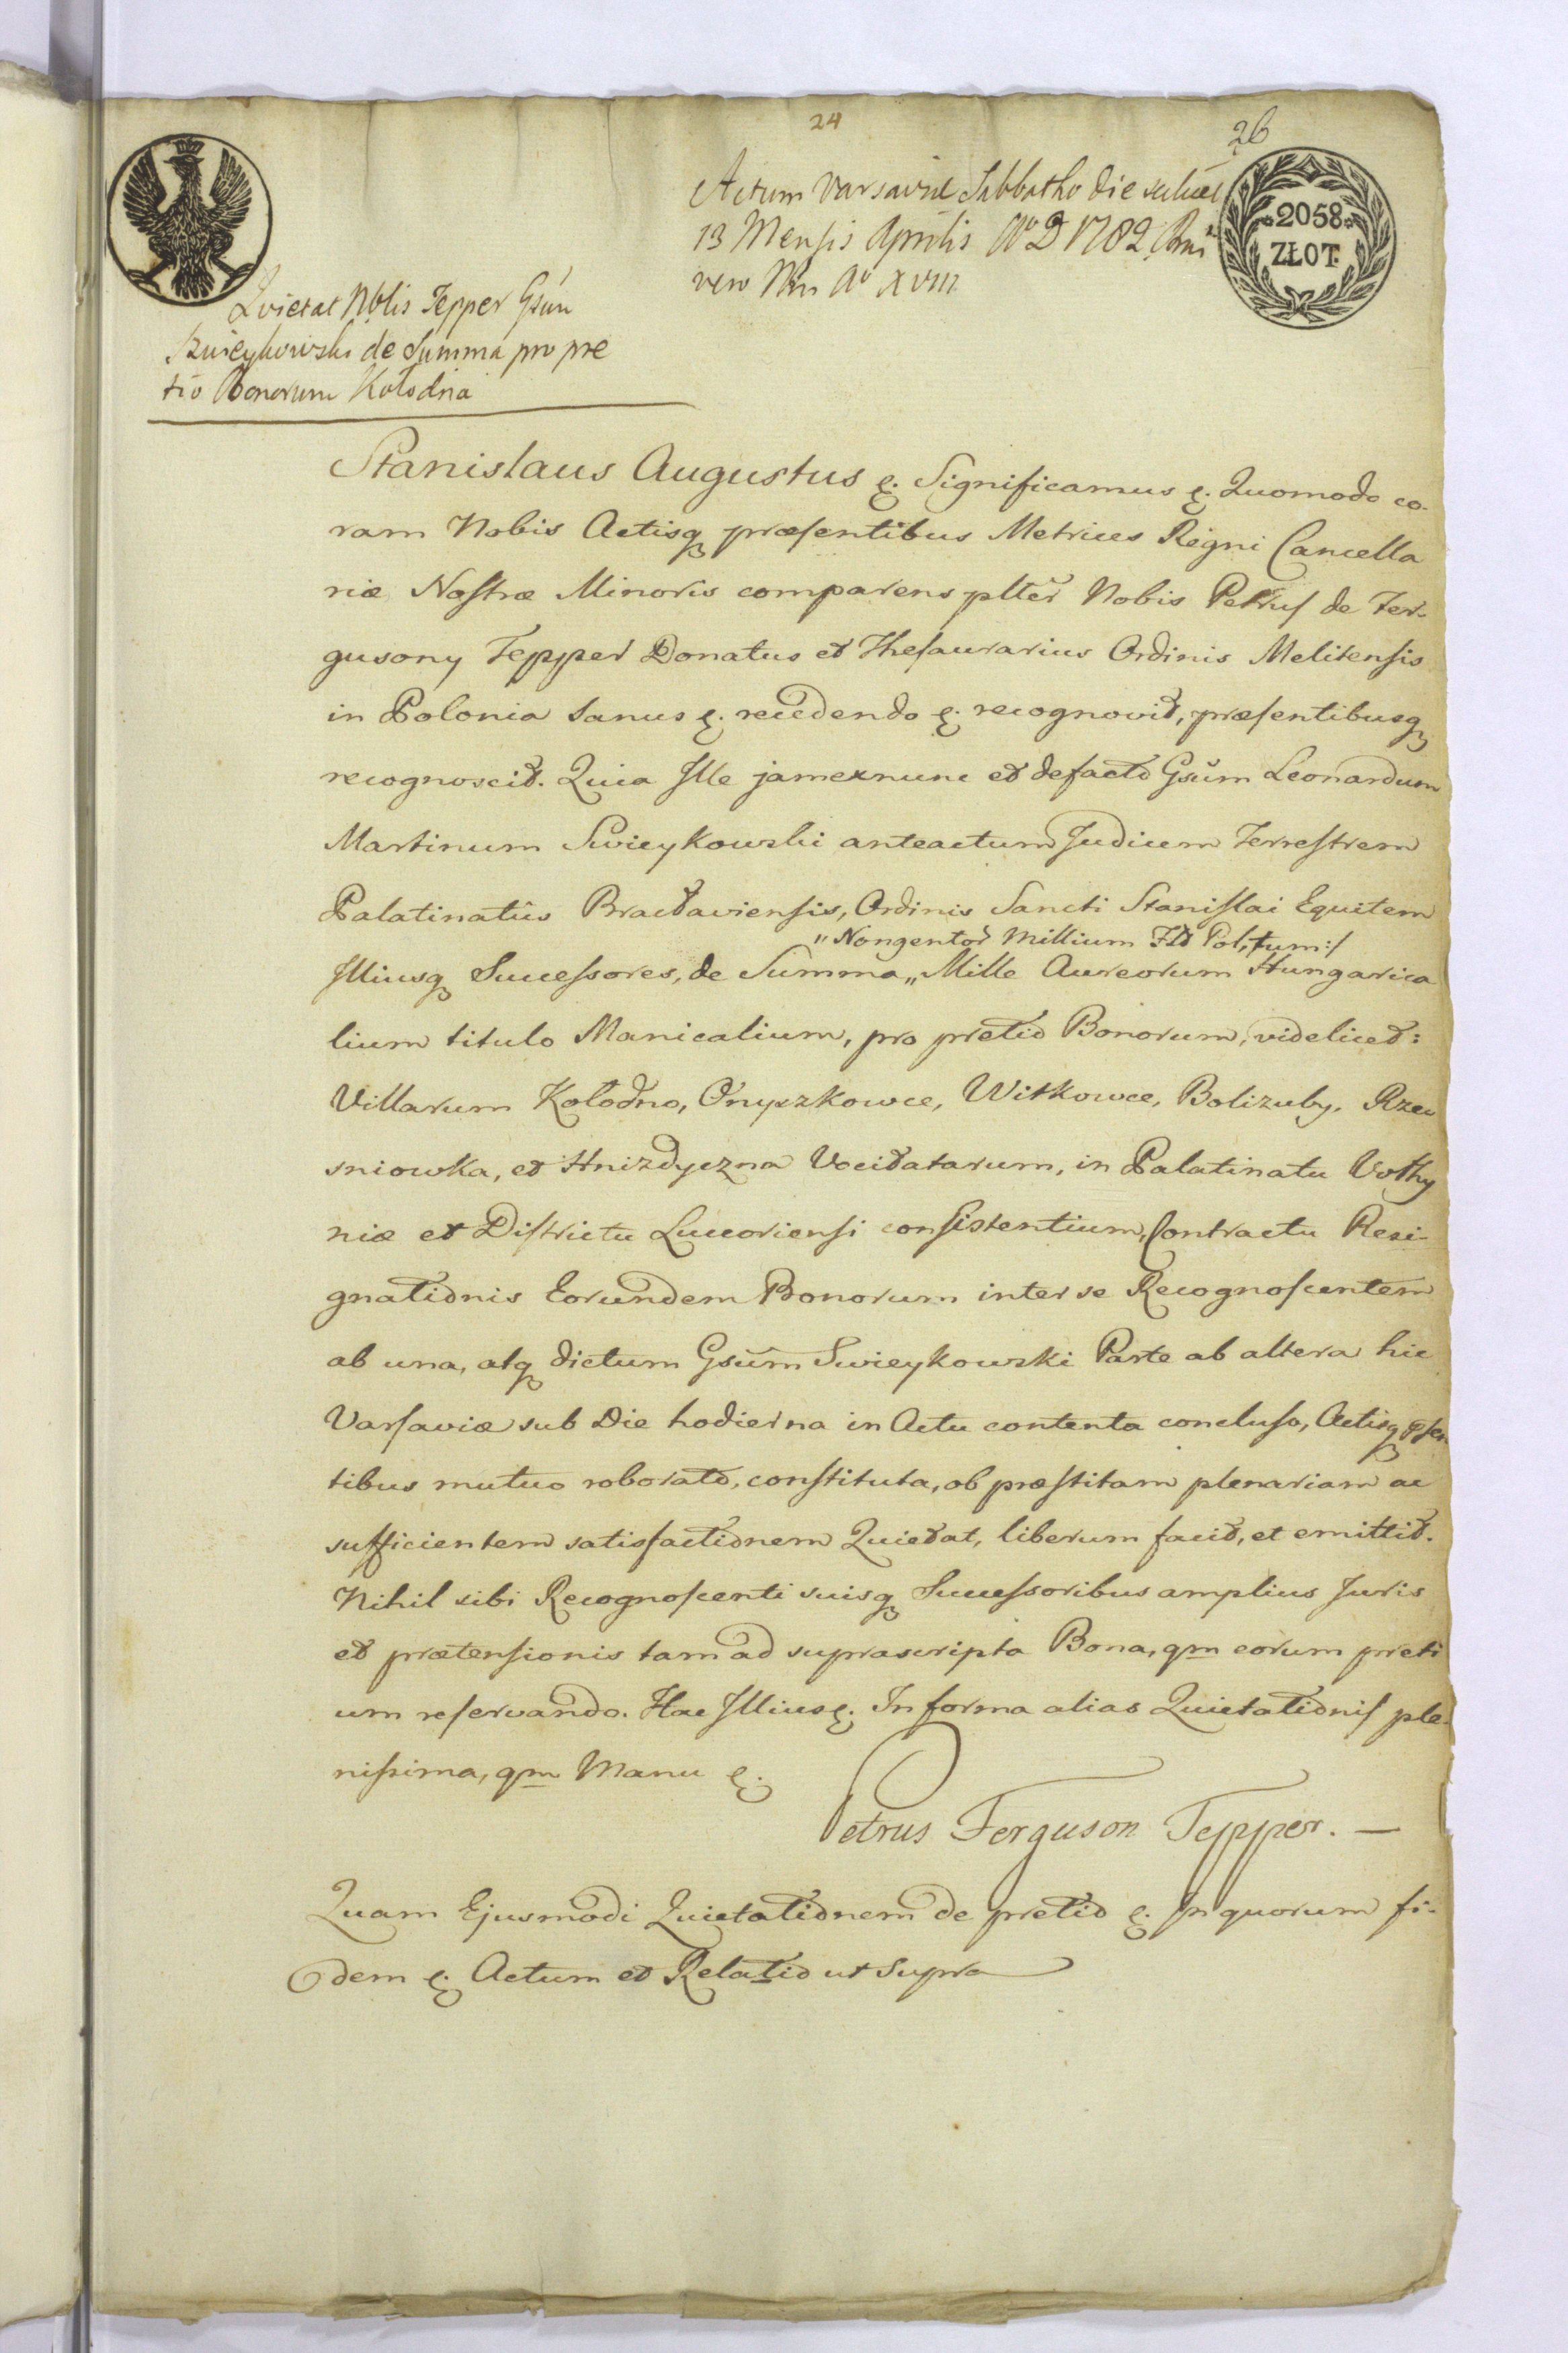 24
26
Actum Varsaviæ Sabbatho die
13 Mensis Aprilis Aº D 1782
vero Aº XVIII
2058
ZŁOT.
Quietat Nblis Tepper Gsum
Swieykowski de Summa pro pre
tio Bonorum Kołodna
Stanislaus Augustus &. Significamus &. Quomodo co-
ram Nobis Actisq præsentibus Metrices Regni Cancella
riæ Nostræ Minoris comparens plter Nobis Petrus de Fer-
gusony Tepper Donatus et Thesaurarius Ordinis Melitensis
in Polonia sanus &. recedendo &. recognovit, præsentibusq
recognoscit. Quia Ille jamexnunc et defacto Gsum Leonardum
Martinum Swieykowski anteactum Judicem Terrestrem
Palatinatûs Bracłaviensis, Ordinis Sancti Stanislai Equitem
„Nongentor Millium Fld Pol, tum:/
Illiusq Successores, de Summa „ Mille Aureorum Hungarica
lium titulo Manicalium, pro pretio Bonorum, videlicet:
Villarum Kołodno, Onyszkowce, Witkowce, Bolizuby, Rzen
sniowka, et Hnizdyczna Vocitatarum, in Palatinatu Volhy
niæ et Districtu Luceoriensi consistentium, Contractu Resi-
gnationis Eorundem Bonorum inter se Recognoscentem
ab una, atq dictum Gsum Swieykowski Parte ab altera hic
Varsaviæ sub Die hodierna in Actu contenta concluso, Actisq psen
tibus mutuo roborato, constituta, ob præstitam plenariam ac
sufficientem satisfactionem Quietat, liberum facit, et emittit.
Nihil sibi Recognoscenti suisq Successoribus amplius Juris
et prætensionis tam ad suprascripta Bona, qm eorum preti
um reservando. Hac Illius &. In forma alias Quietationis ple-
nissima, qm Manu &.
Petrus Ferguson Tepper. —
Quam Ejusmodi Quietationem de pretio &. In quorum fi-
dem &. Actum et Relatio ut Supra